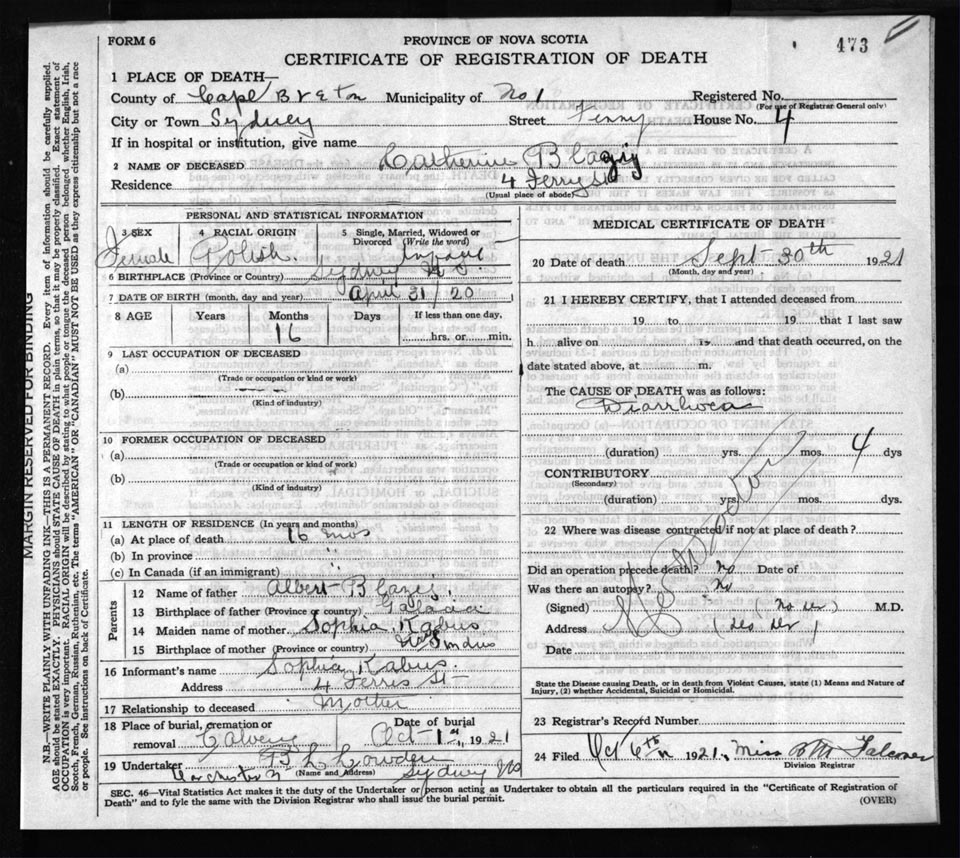 FORM 6
PROVINCE OF NOVA SCOTIA
473
CERTIFICATE OF REGISTRATION OF DEATH
1 PLACE OF DEATH—
County of Cape Breton Municipality of No 1 Registered No.
(For use of Registrar General only)
City or Town Sydney Street Ferry House No. 4
If in hospital or institution, give name
2 NAME OF DECEASED Catherine
Residence 4 Ferry St
(Usual place of abode)
PERSONAL AND STATISTICAL INFORMATION
3 SEX 4 RACIAL ORIGIN 5 Single, Married, Widowed or Divorced (Write the word)
Female Polish Infant
6 BIRTHPLACE (Province or Country) Sydney N.S.
7 DATE OF BIRTH (month, day and year) April 31/20
8 AGE Years Months Days If less than one day,
16 hrs. or min.
9 LAST OCCUPATION OF DECEASED
(a)
(Trade or occupation or kind or work)
(b)
(Kind of industry)
10 FORMER OCCUPATION OF DECEASED
(a)
(Trade or occupation or kind of work)
(b)
(Kind of industry)
11 LENGTH OF RESIDENCE (In years and months)
(a) At place of death 16 mos
(b) In province "
(c) In Canada (if an immigrant) "
Parents
12 Name of father Albert
13 Birthplace of father (Province or country)
14 Maiden name of mother Sophia Kabus
15 Birthplace of mother (Province or country)
16 Informant's name Sophia Kabus.
Address 4 Ferris St
17 Relationship to deceased Mother
18 Place of burial, cremation or removal Date of burial
Oct 1st, 1921
19 Undertaker
(Name and Address) Sydney NS
MEDICAL CERTIFICATE OF DEATH
20 Date of death Sept 30th 1921
(Month, day and year)
21 I HEREBY CERTIFY, that I attended deceased from
19 to 19 that I last saw
h alive on 19 and that death occurred, on the
date stated above, at m.
The CAUSE OF DEATH was as follows:
Diarrhoea
(duration) yrs. mos. 4 dys
CONTRIBUTORY
(Secondary)
(duration) yrs. mos. dys.
No Doctor
22 Where was disease contracted if not at place of death?
Did an operation precede death? no Date of
Was there an autopsy? no
(Signed) M.D.
Address
Date
State the Disease causing Death, or in death from Violent Causes, state (1) Means and Nature of
Injury, (2) whether Accidental, Suicidal or Homicidal.
23 Registrar's Record Number
24 Filed Oct 6th 1921, Miss Falconer
Division Registrar
SEC. 46—Vital Statistics Act makes it the duty of the Undertaker or person acting as Undertaker to obtain all the particulars required in the "Certificate of Registration of
Death" and to fyle the same with the Division Registrar who shall issue the burial permit. (OVER)
MARGIN RESERVED FOR BINDING
N.B.—WRITE PLAINLY WITH UNFADING INK—THIS IS A PERMANENT RECORD. Every item of information should be carefully supplied.
AGE should be stated EXACTLY. PHYSICIANS should STATE CAUSE OF DEATH in plain terms, so that it may be properly classified. Exact statement of
OCCUPATION is very important. RACIAL ORIGIN will be described by stating to what people or tongue the deceased person belonged, whether English, Irish,
Scotch, French, German, Russian, Ruthenian, etc. The terms "AMERICAN" OR "CANADIAN" MUST NOT BE USED as they express citizenship but not a race
or people. See instructions on back of Certificate.